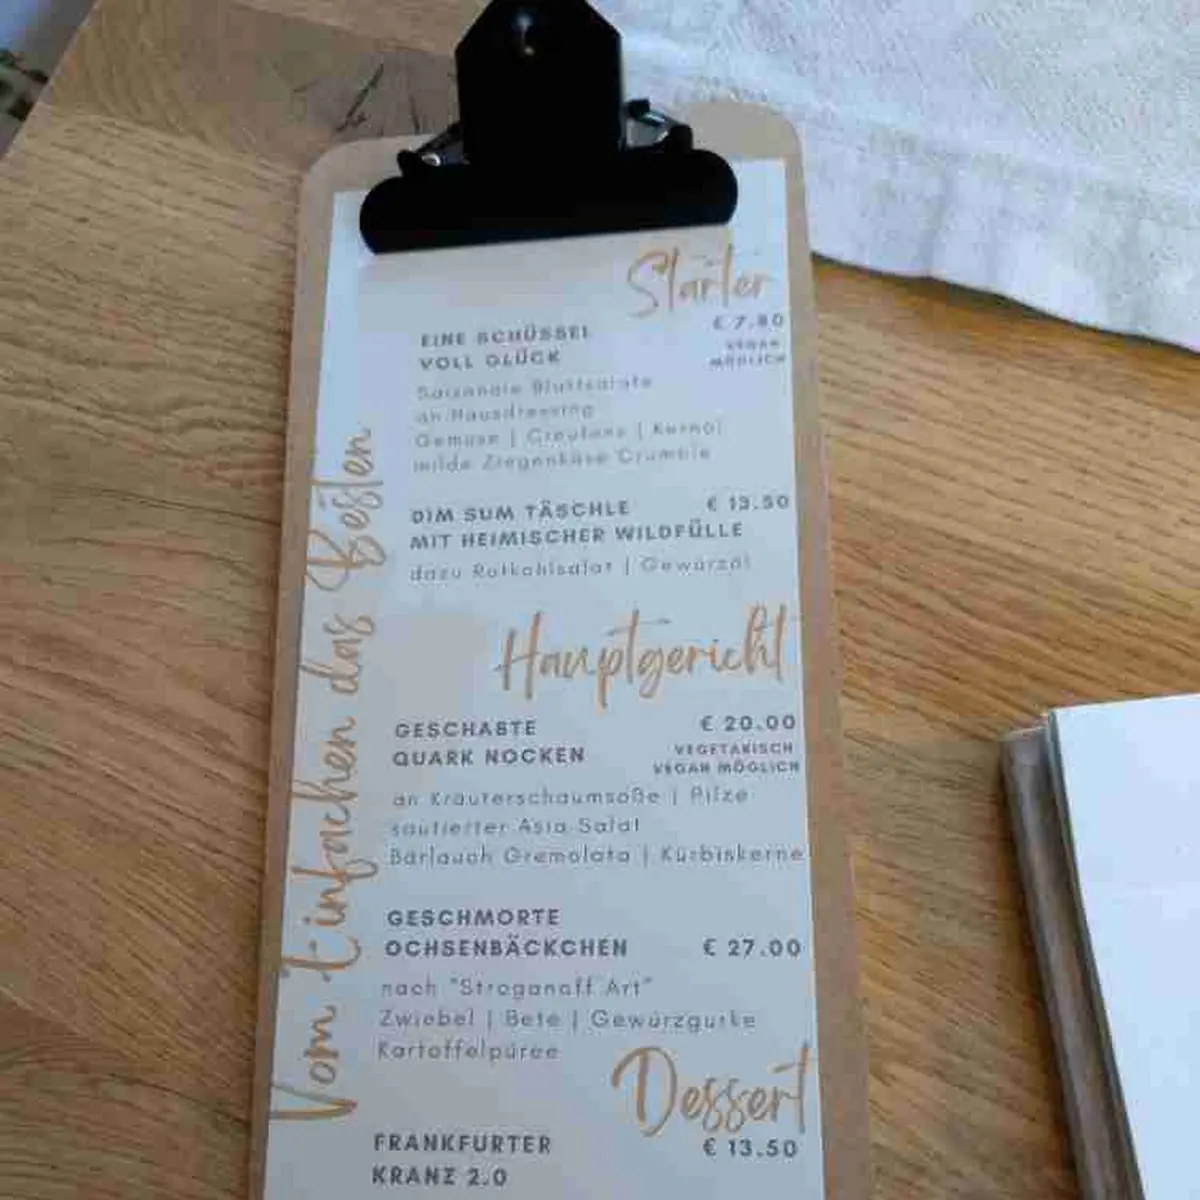 Starter
EINE SCHÜSSEL
VOLL GLÜCK
€ 7.80
VEGAN
MÖGLICH
Saisonale Blattsalate
an Hausdressing
Gemüse | Croutons | Kernöl
milde Ziegenkäse Crumble
DIM SUM TÄSCHLE € 13.50
MIT HEIMISCHER WILDFÜLLE
dazu Rotkohlsalat | Gewürzöl
Hauptgericht
GESCHABTE € 20.00
QUARK NOCKEN
VEGETARISCH
VEGAN MÖGLICH
an Kräuterschaumsoße | Pilze
sautierter Asia Salat
Bärlauch Gremolata | Kürbiskerne
GESCHMORTE
OCHSENBÄCKCHEN € 27.00
nach "Stroganoff Art"
Zwiebel | Bete | Gewürzgurke
Kartoffelpüree
Dessert
FRANKFURTER € 13.50
KRANZ 2.0
Vom Einfachen das Besten